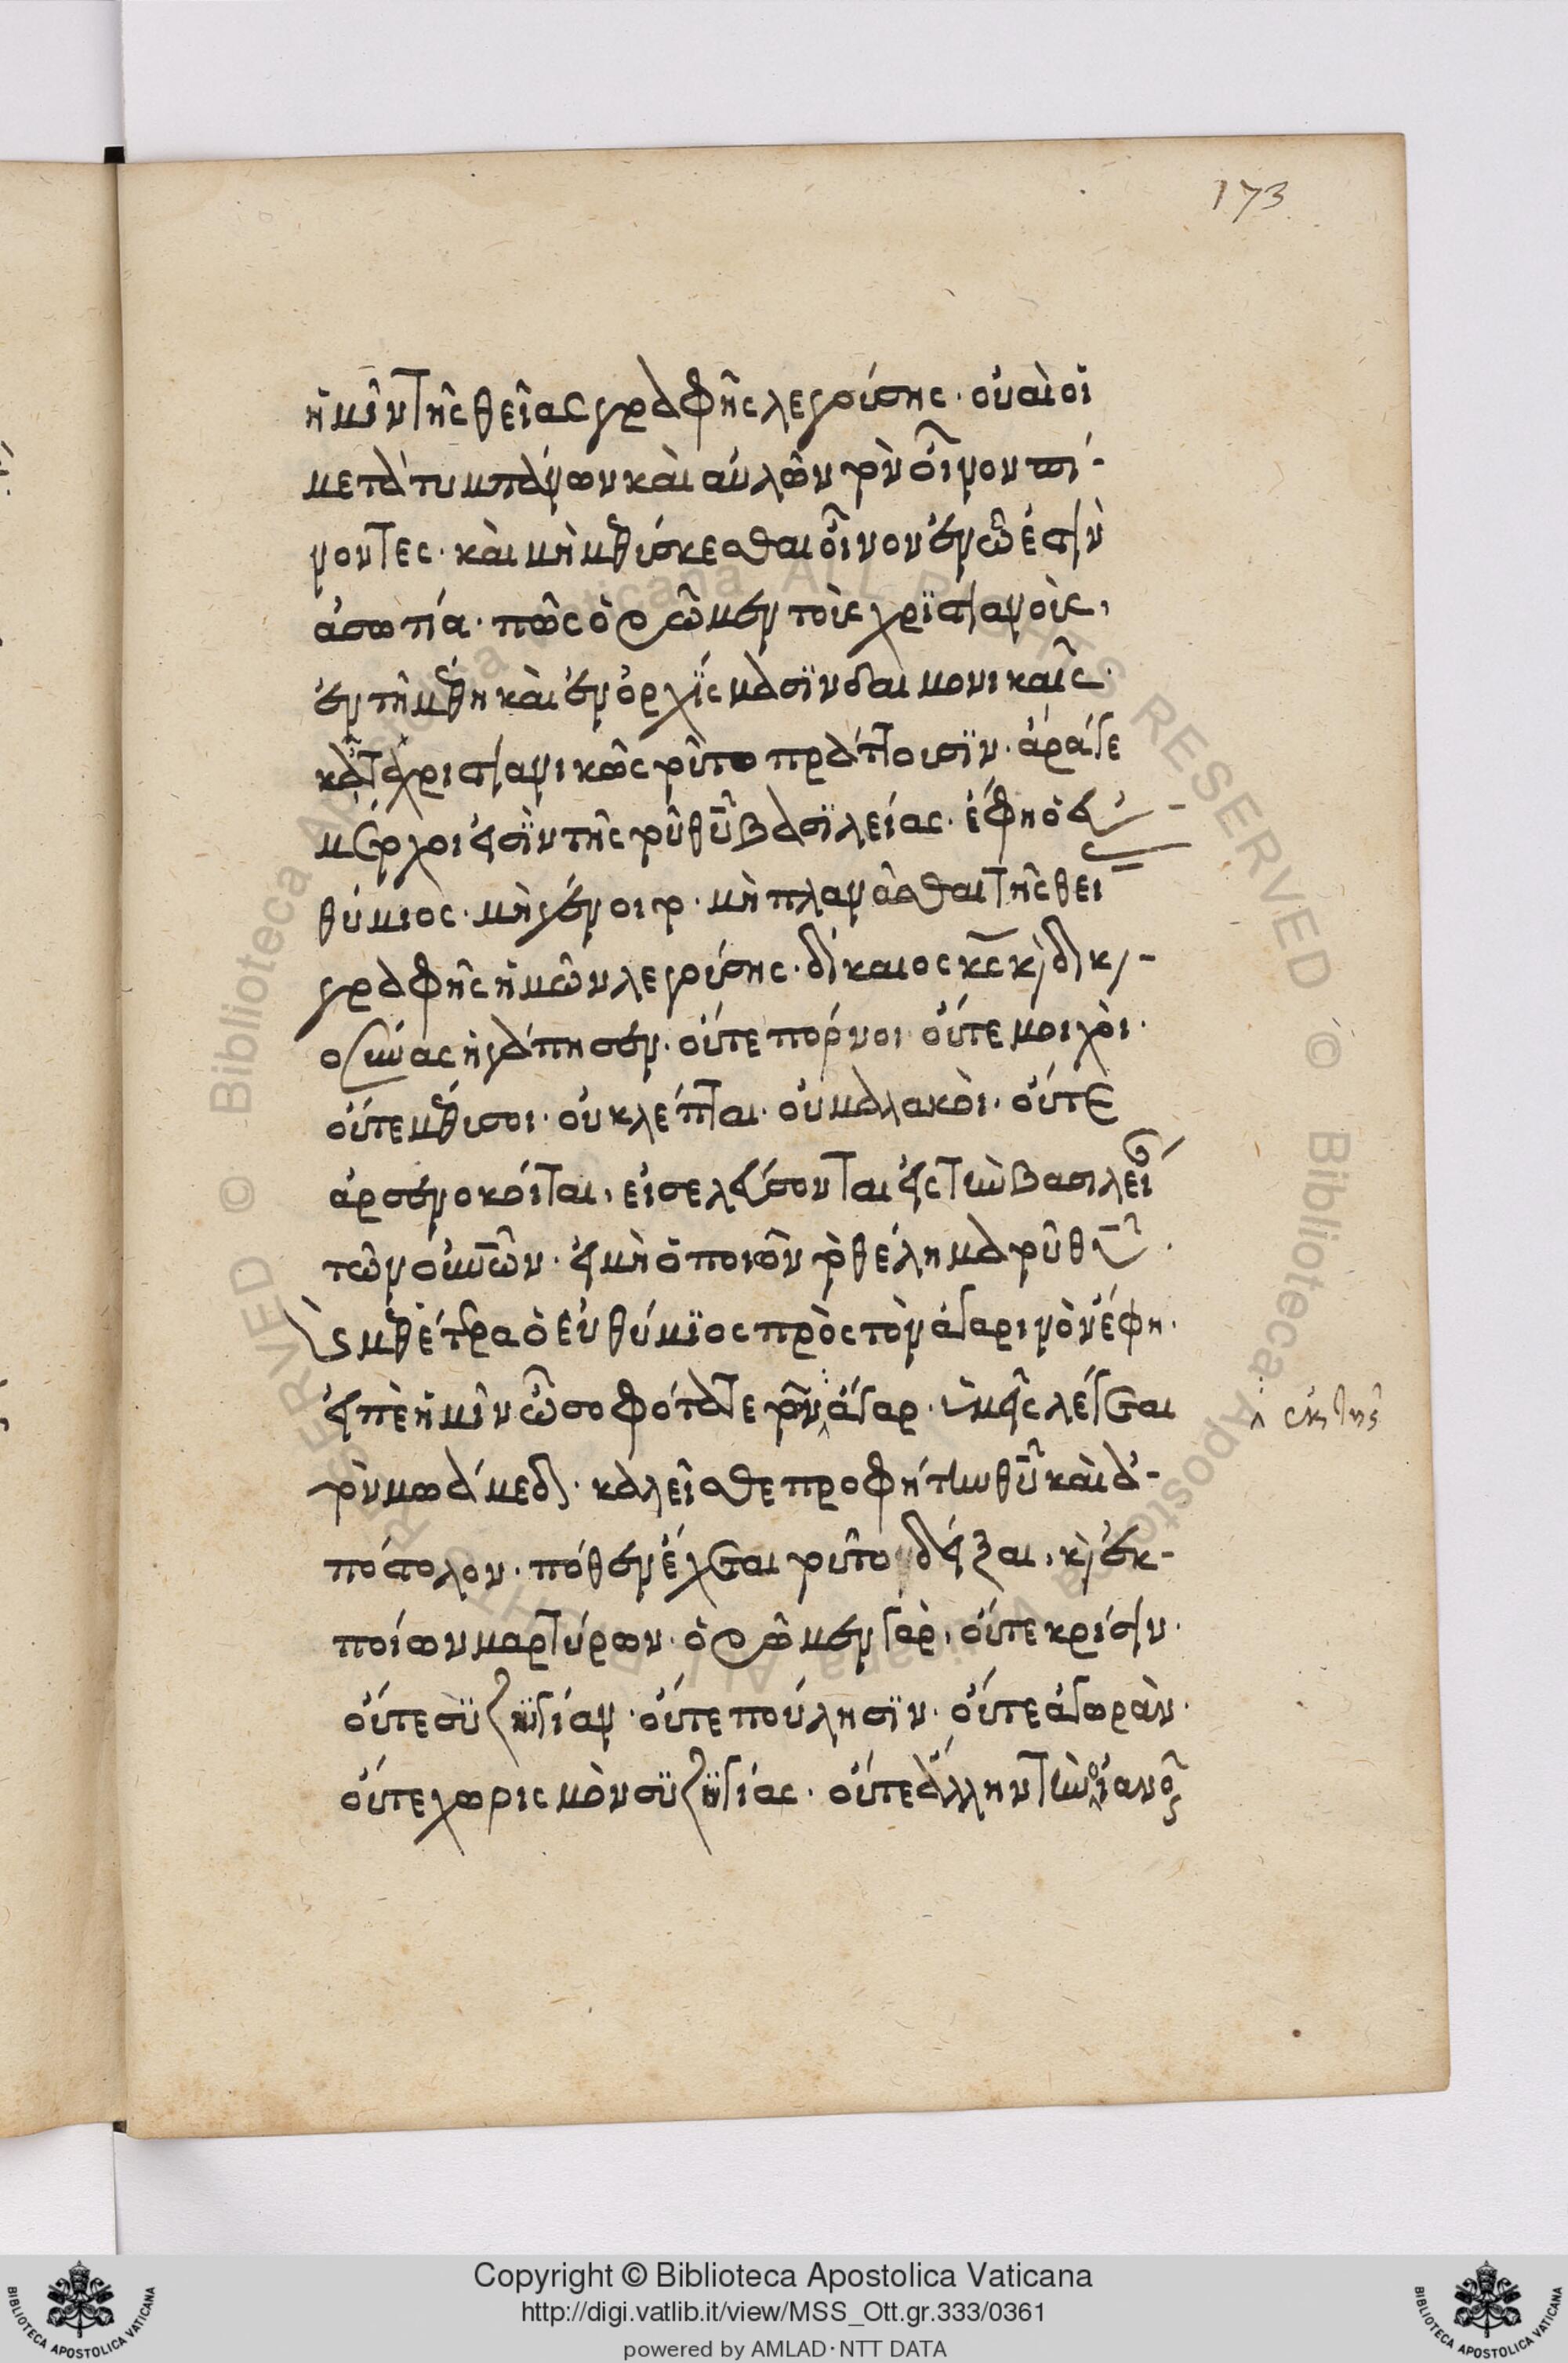 173
ἡμῖν τῆς θείας γραφῆς λεγούσης · οὐαὶ οἱ
μετὰ τυμπάνων καὶ αὐλῶν τὸν οἶνον πί-
νοντες · καὶ μὴ μεθύσκεσθαι οἶνον ἐν ᾧ ἐστὶν
ἀσωτία · πῶς ὁρῶμεν τοῖς χριστιανοῖς,
ἐν τῇ μέθη καὶ ἐν ὀρχίσμασϊν δαιμονικαῖς ·
χριστιανικῶς τοῦτο πράττουσϊν · ἄρά γε
μέτοχοι εἰσῒν τῆς τοῦ θῦ βασϊλείας · ἔφη ὁ εὐ-
θύμιος · μὴ γένοιτο · μὴ πλανᾶσθαι τῆς θεί
γραφῆς ἡμῶν λεγούσης · δίκαιος κς κὶ δικι-
οσύνας ἠγάπησεν · οὔτε πόρνοι οὔτε μοιχοὶ ·
οὔτε μέθυσοι · οὐ κλέπται · οὐ μαλακοὶ · οὔτε
ἀρσενοκοίται, εἰσελεύσονται εἰς τὴν βασιλεί
τῶν οὐνῶν · εἰ μὴ ὁ ποιῶν τὸ θέλημα τοῦ θυ ·
ὁ εὐθύμϊος πρὸς τὸν ἀγαρινὸν ἔφη ·
εἰπὲ ἡμῖν ὦ σοφότατε τῶν ἄγαρ · ὑμεῖς λέγεται
τὸν μωάμεδ · καλεῖσθε προφήτην θῦ καὶ ἀ-
πόστολον · πόθεν ἔχεται τοῦτο δεῖξαι, κὶ ἐκ-
ποίων μαρτύρων · ὁρῶμεν γὰρ, οὔτε κρίσιν ·
οὔτε σϋζηγίαν · οὔτε πούλησϊν · οὔτε ἀγωρὰν ·
οὔτε χωρισμὸν σϋζηγίας · οὔτε ἄλλην τὴν οἵαν
ἐκ τῆς
Copyright © Biblioteca Apostolica Vaticana
http://digi.vatlib.it/view/MSS_Ott.gr.333/0361
powered by AMLAD · NTT DATA
BIBLIOTECA APOSTOLICA VATICANA
BIBLIOTECA APOSTOLICA VATICANA